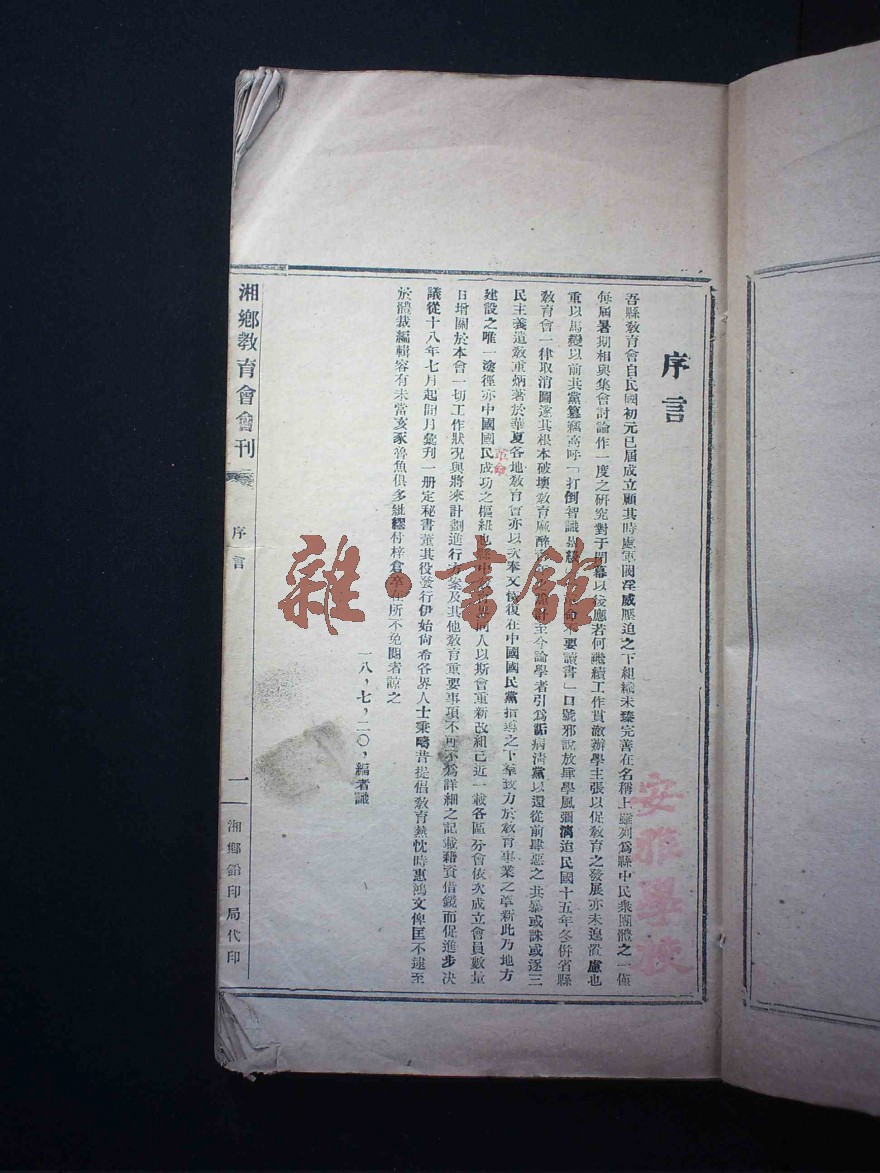 序言
吾縣敎育會自民國初元已屆成立顧其時處軍國淫威壓迫之下組織未臻完善在名稱上雖列爲縣中民衆團體之一僅
每屆暑期相與集會討論作一度之研究對于開幕以後應若何繼續工作貫敝辦學主張以促敎育之發展亦未遑置慮也
重以馬變以前共黨篡竊高呼「打倒智識 要讀書」口號邪說放肆學風彌漓迨民國十五年冬併省縣
敎育會一律取消圖遂其根本破壞敎育麻醉 至今論學者引爲詬病淸黨以還從前肆惡之共暴或誅或逐三
民主義遺敎重炳著於華夏各地敎育會亦以次奉文恢復在中國國民黨指導之下羣致力於敎育事業之革新此乃地方
建設之唯一塗徑亦中國國民革命成功之樞紐也 同人以斯會重新改組已近一載各區分會依次成立會員數量
日增關於本會一切工作狀况與將來計劃進行方案及其他敎育重要事項不可不爲詳細之記載藉資借鏡而促進步决
議從十八年七月起間月彙刊一册定秘書董其役發行伊始尙希各界人士秉疇昔提倡敎育熱忱時惠鴻文俾匡不逮至
於體裁編輯容有未當亥豕魯魚俱多紕繆付梓倉卒在所不免閱者諒之
一八，七，二〇，編者識
湘鄉敎育會會刊
序言
一
湘鄉鉛印局代印
雜·書館
安雅學校